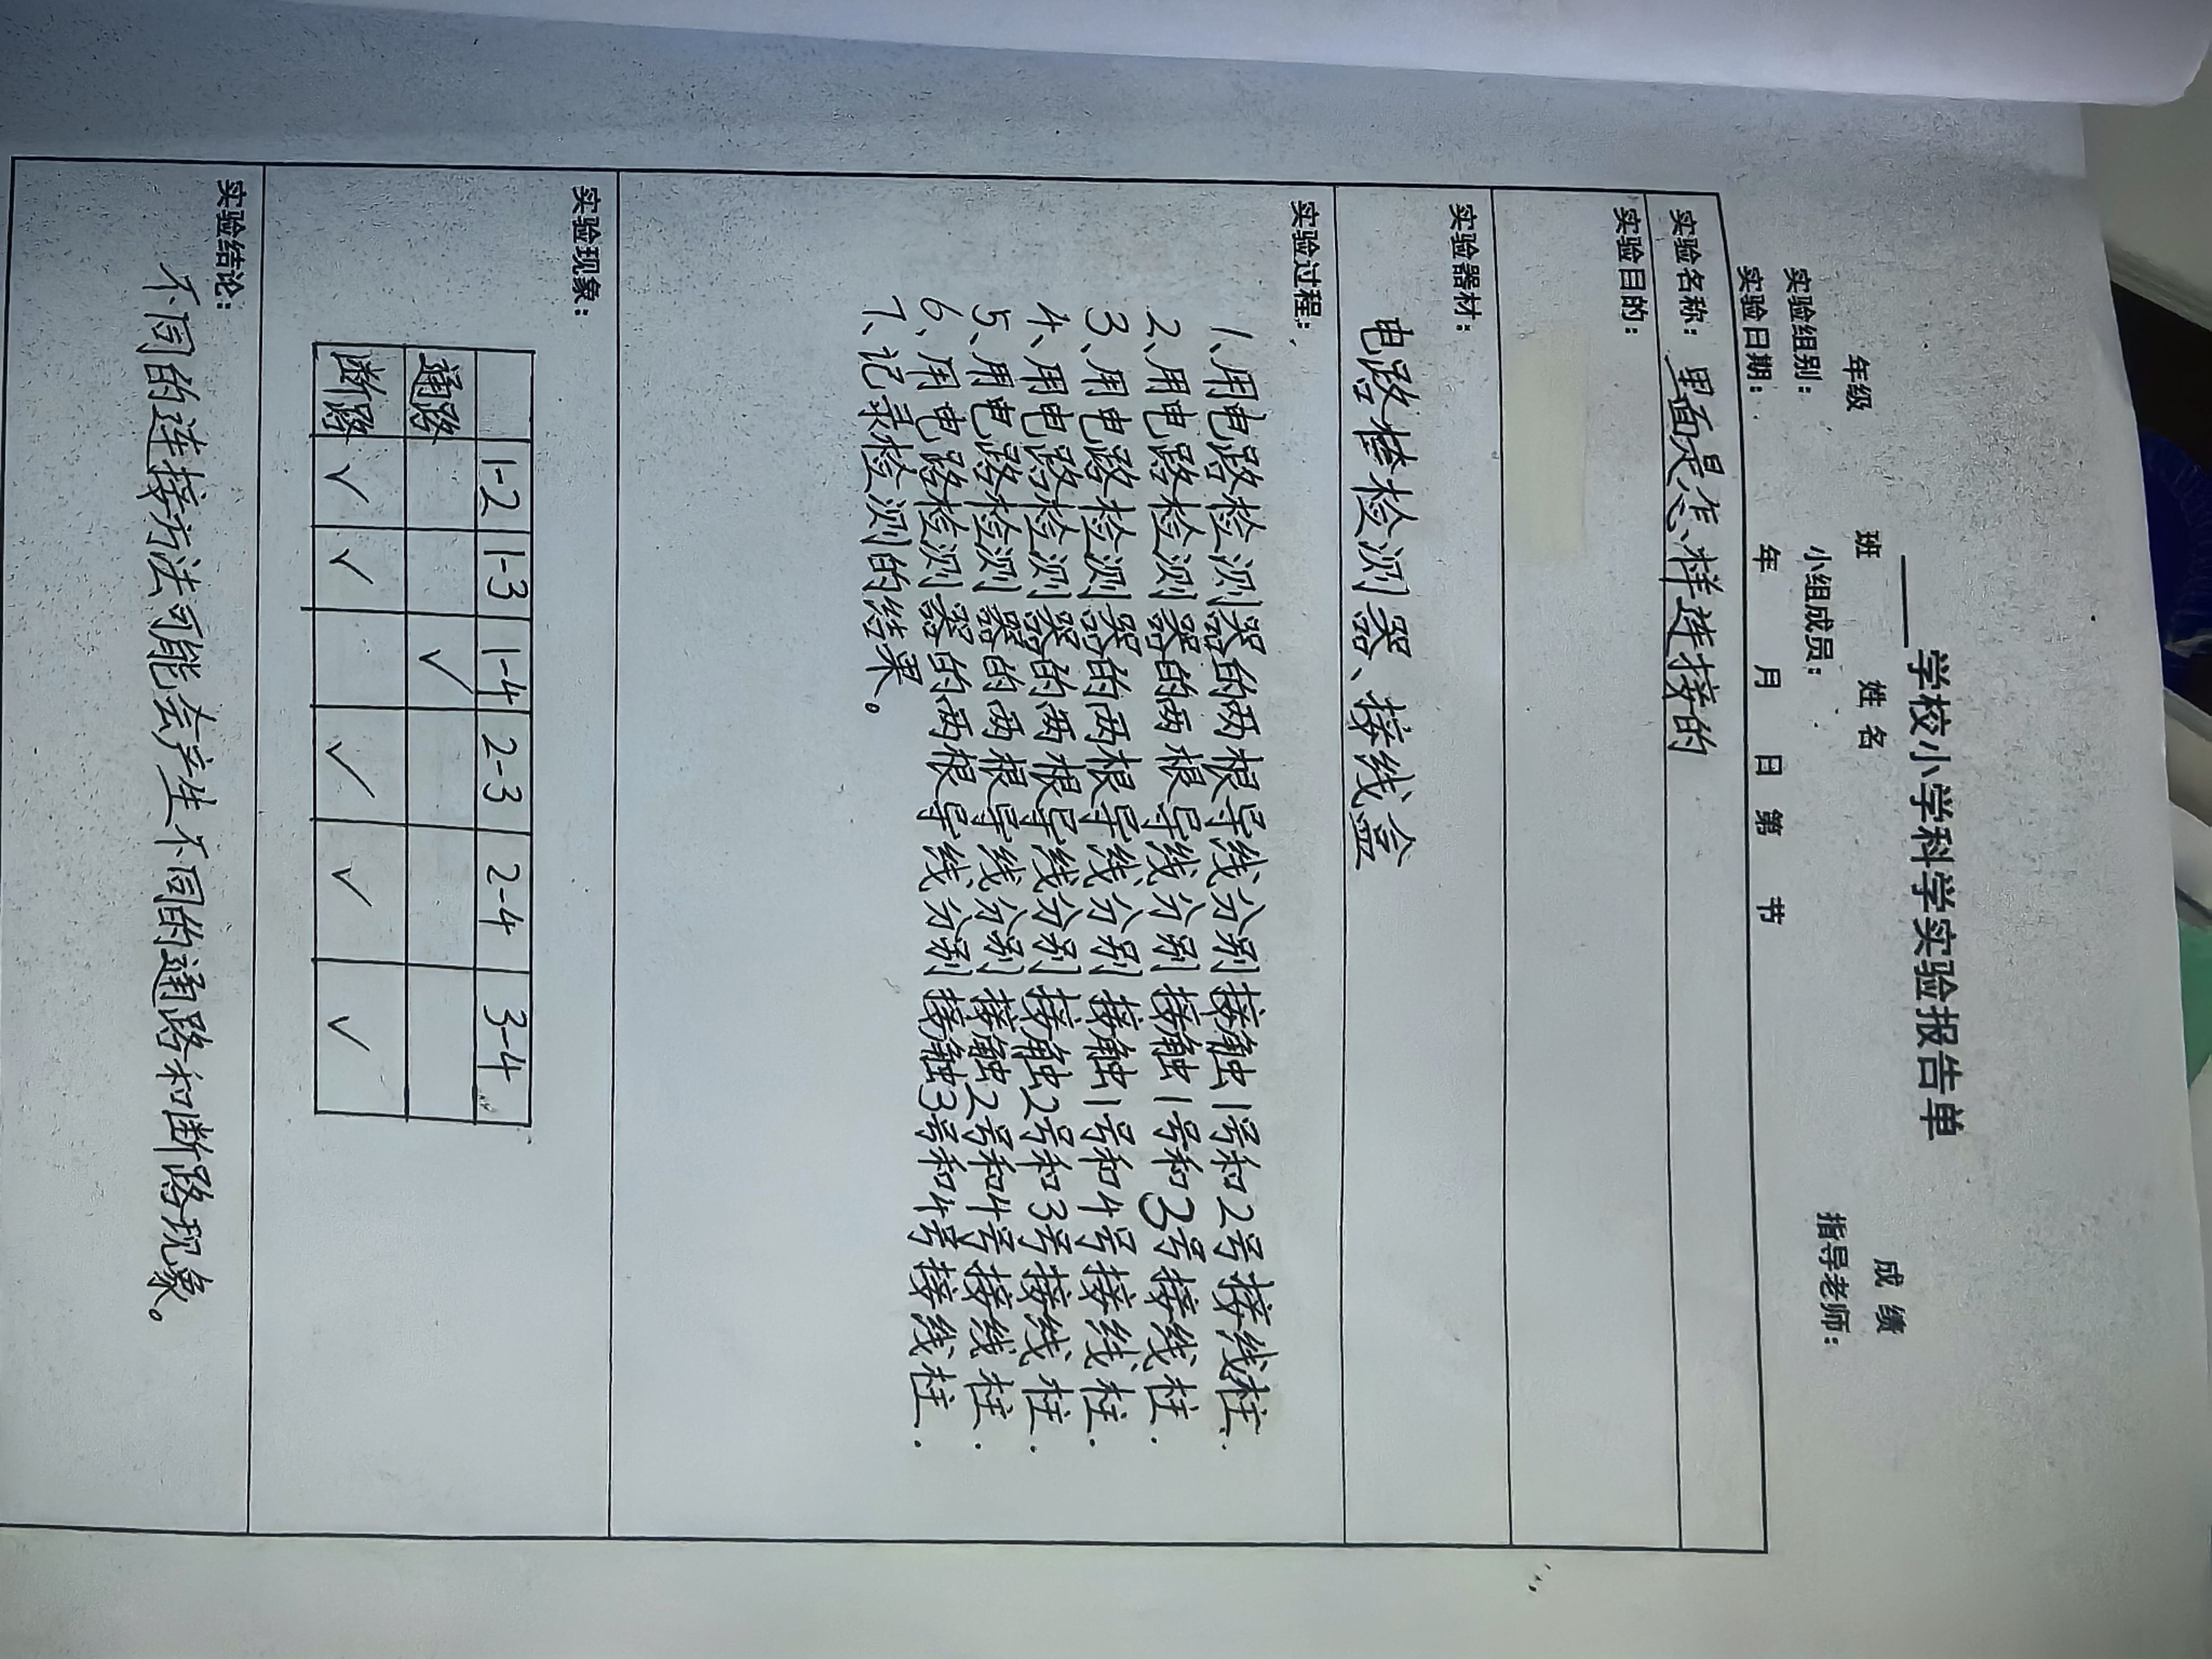 ____学校小学科学实验报告单
年级 班 姓名 成绩
实验组别： 小组成员： 指导老师：
实验日期： 年 月 日 第 节
实验名称：里面是怎样连接的
实验目的：
实验器材：
电路检测器、接线盒
实验过程：
1、用电路检测器的两根导线分别接触1号和2号接线柱.
2、用电路检测器的两根导线分别接触1号和3号接线柱.
3、用电路检测器的两根导线分别接触1号和4号接线柱.
4、用电路检测器的两根导线分别接触2号和3号接线柱.
5、用电路检测器的两根导线分别接触2号和4号接线柱.
6、用电路检测器的两根导线分别接触3号和4号接线柱.
7、记录检测的结果。
实验现象：
1-2 1-3 1-4 2-3 2-4 3-4
通路 ✓
断路 ✓ ✓ ✓ ✓ ✓
实验结论：
不同的连接方法可能会产生不同的通路和断路现象。